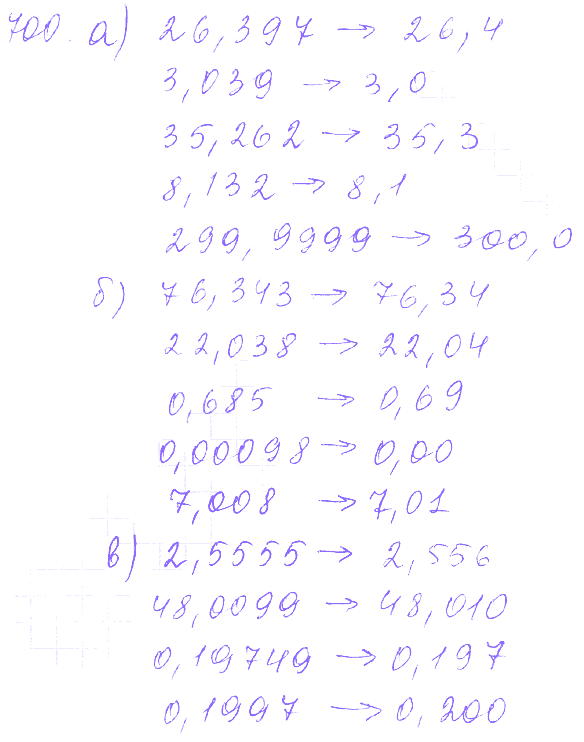 700. а) 26,397 → 26,4
3,039 → 3,0
35,262 → 35,3
8,132 → 8,1
299,9999 → 300,0
б) 76,343 → 76,34
22,038 → 22,04
0,685 → 0,69
0,00098 → 0,00
7,008 → 7,01
в) 2,5555 → 2,556
48,0099 → 48,010
0,19749 → 0,197
0,1997 → 0,200